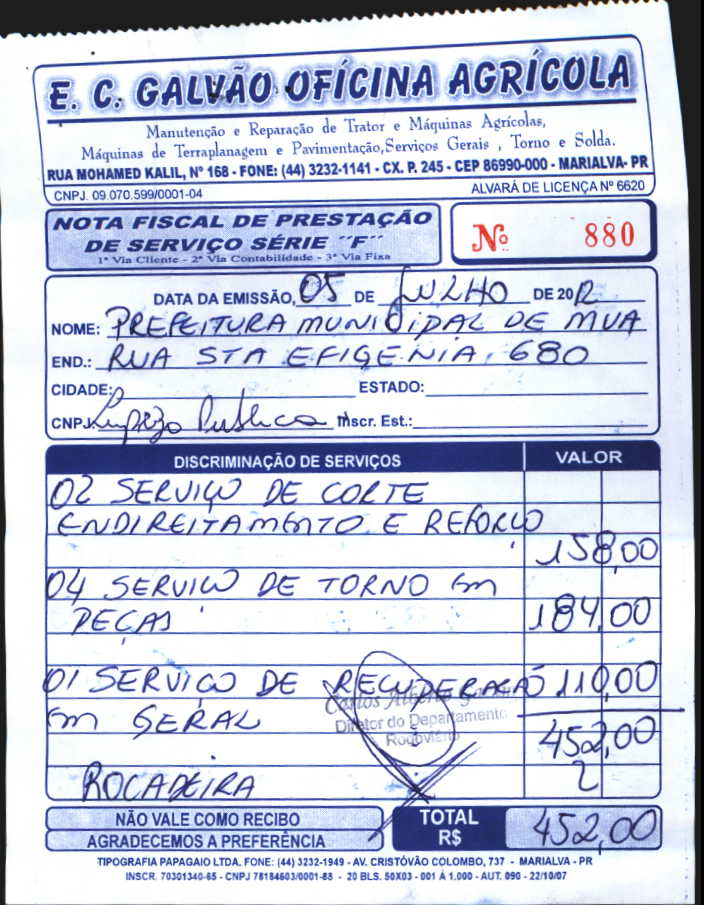 E. C. GALVÃO OFÍCINA AGRÍCOLA
Manutenção e Reparação de Trator e Máquinas Agrícolas,
Máquinas de Terraplanagem e Pavimentação,Serviços Gerais , Torno e Solda.
RUA MOHAMED KALIL, Nº 168 - FONE: (44) 3232-1141 - CX. P. 245 - CEP 86990-000 - MARIALVA- PR
CNPJ. 09.070.599/0001-04 ALVARÁ DE LICENÇA Nº 6620
NOTA FISCAL DE PRESTAÇÃO
DE SERVIÇO SÉRIE ´´F´´
1ª Via Cliente - 2ª Via Contabilidade - 3ª Via Fixa
Nº 880
DATA DA EMISSÃO, 05 DE JULHO DE 2012
NOME: PREFEITURA MUNICIPAL DE MVA
END.: RUA STA EFIGENIA, 680
CIDADE: ESTADO:
CNPJ. Limpeza Publica Inscr. Est.:
DISCRIMINAÇÃO DE SERVIÇOS VALOR
02 SERVIÇO DE CORTE
ENDIREITAMENTO E REFORÇO
158,00
04 SERVIÇO DE TORNO Em
PEÇAS 184,00
01 SERVIÇO DE RECUPERAÇÃO 110,00
Em GERAL 452,00
Diretor do Departamento
Rodoviário
ROCADEIRA
NÃO VALE COMO RECIBO
AGRADECEMOS A PREFERÊNCIA
TOTAL
R$ 452,00
TIPOGRAFIA PAPAGAIO LTDA. FONE: (44) 3232-1949 - AV. CRISTÓVÃO COLOMBO, 737 - MARIALVA - PR
INSCR. 70301340-65 - CNPJ 78184603/0001-88 - 20 BLS. 50X03 - 001 Á 1.000 - AUT. 090 - 22/10/07